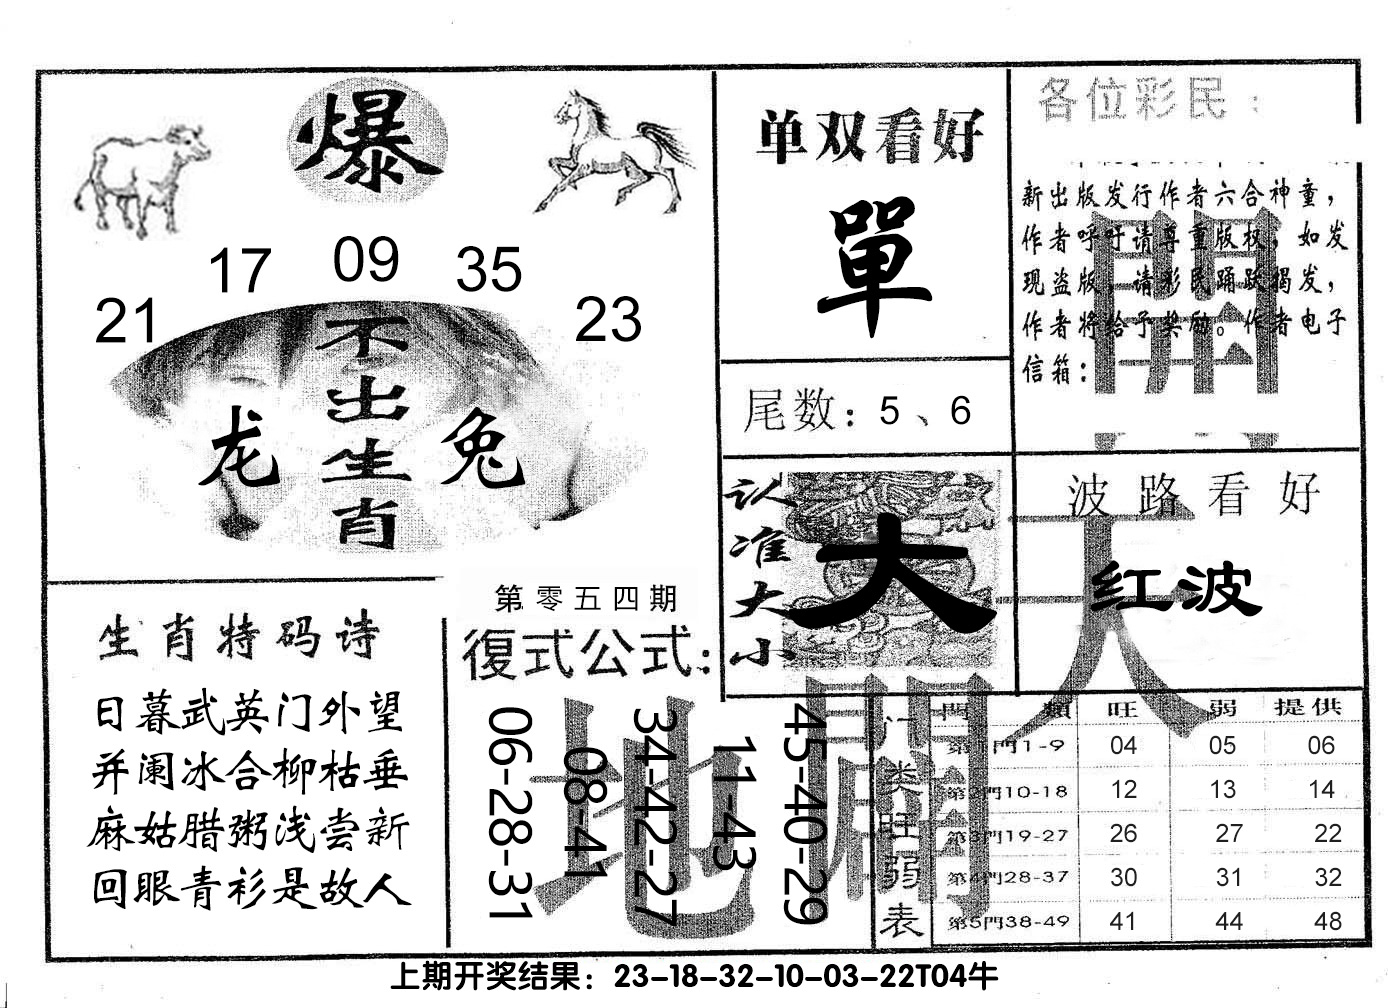 爆
21 17 09 35 23
不出生肖
龙 兔
单双看好
單
尾数：5、6
各位彩民：
新出版发行作者六合神童，
作者呼吁请尊重版权，如发
现盗版，请彩民踊跃揭发，
作者将给予奖励。作者电子
信箱：
认准大小
大
波路看好
红波
生肖特码诗
日暮武英门外望
并阑冰合柳枯垂
麻姑腊粥浅尝新
回眼青衫是故人
第零五四期
復式公式：
06-28-31
08-41
34-42-27
11-43
45-40-29
天
地
门类旺弱表
門類 旺 弱 提供
第1門1-9 04 05 06
第2門10-18 12 13 14
第3門19-27 26 27 22
第4門28-37 30 31 32
第5門38-49 41 44 48
上期开奖结果：23-18-32-10-03-22T04牛